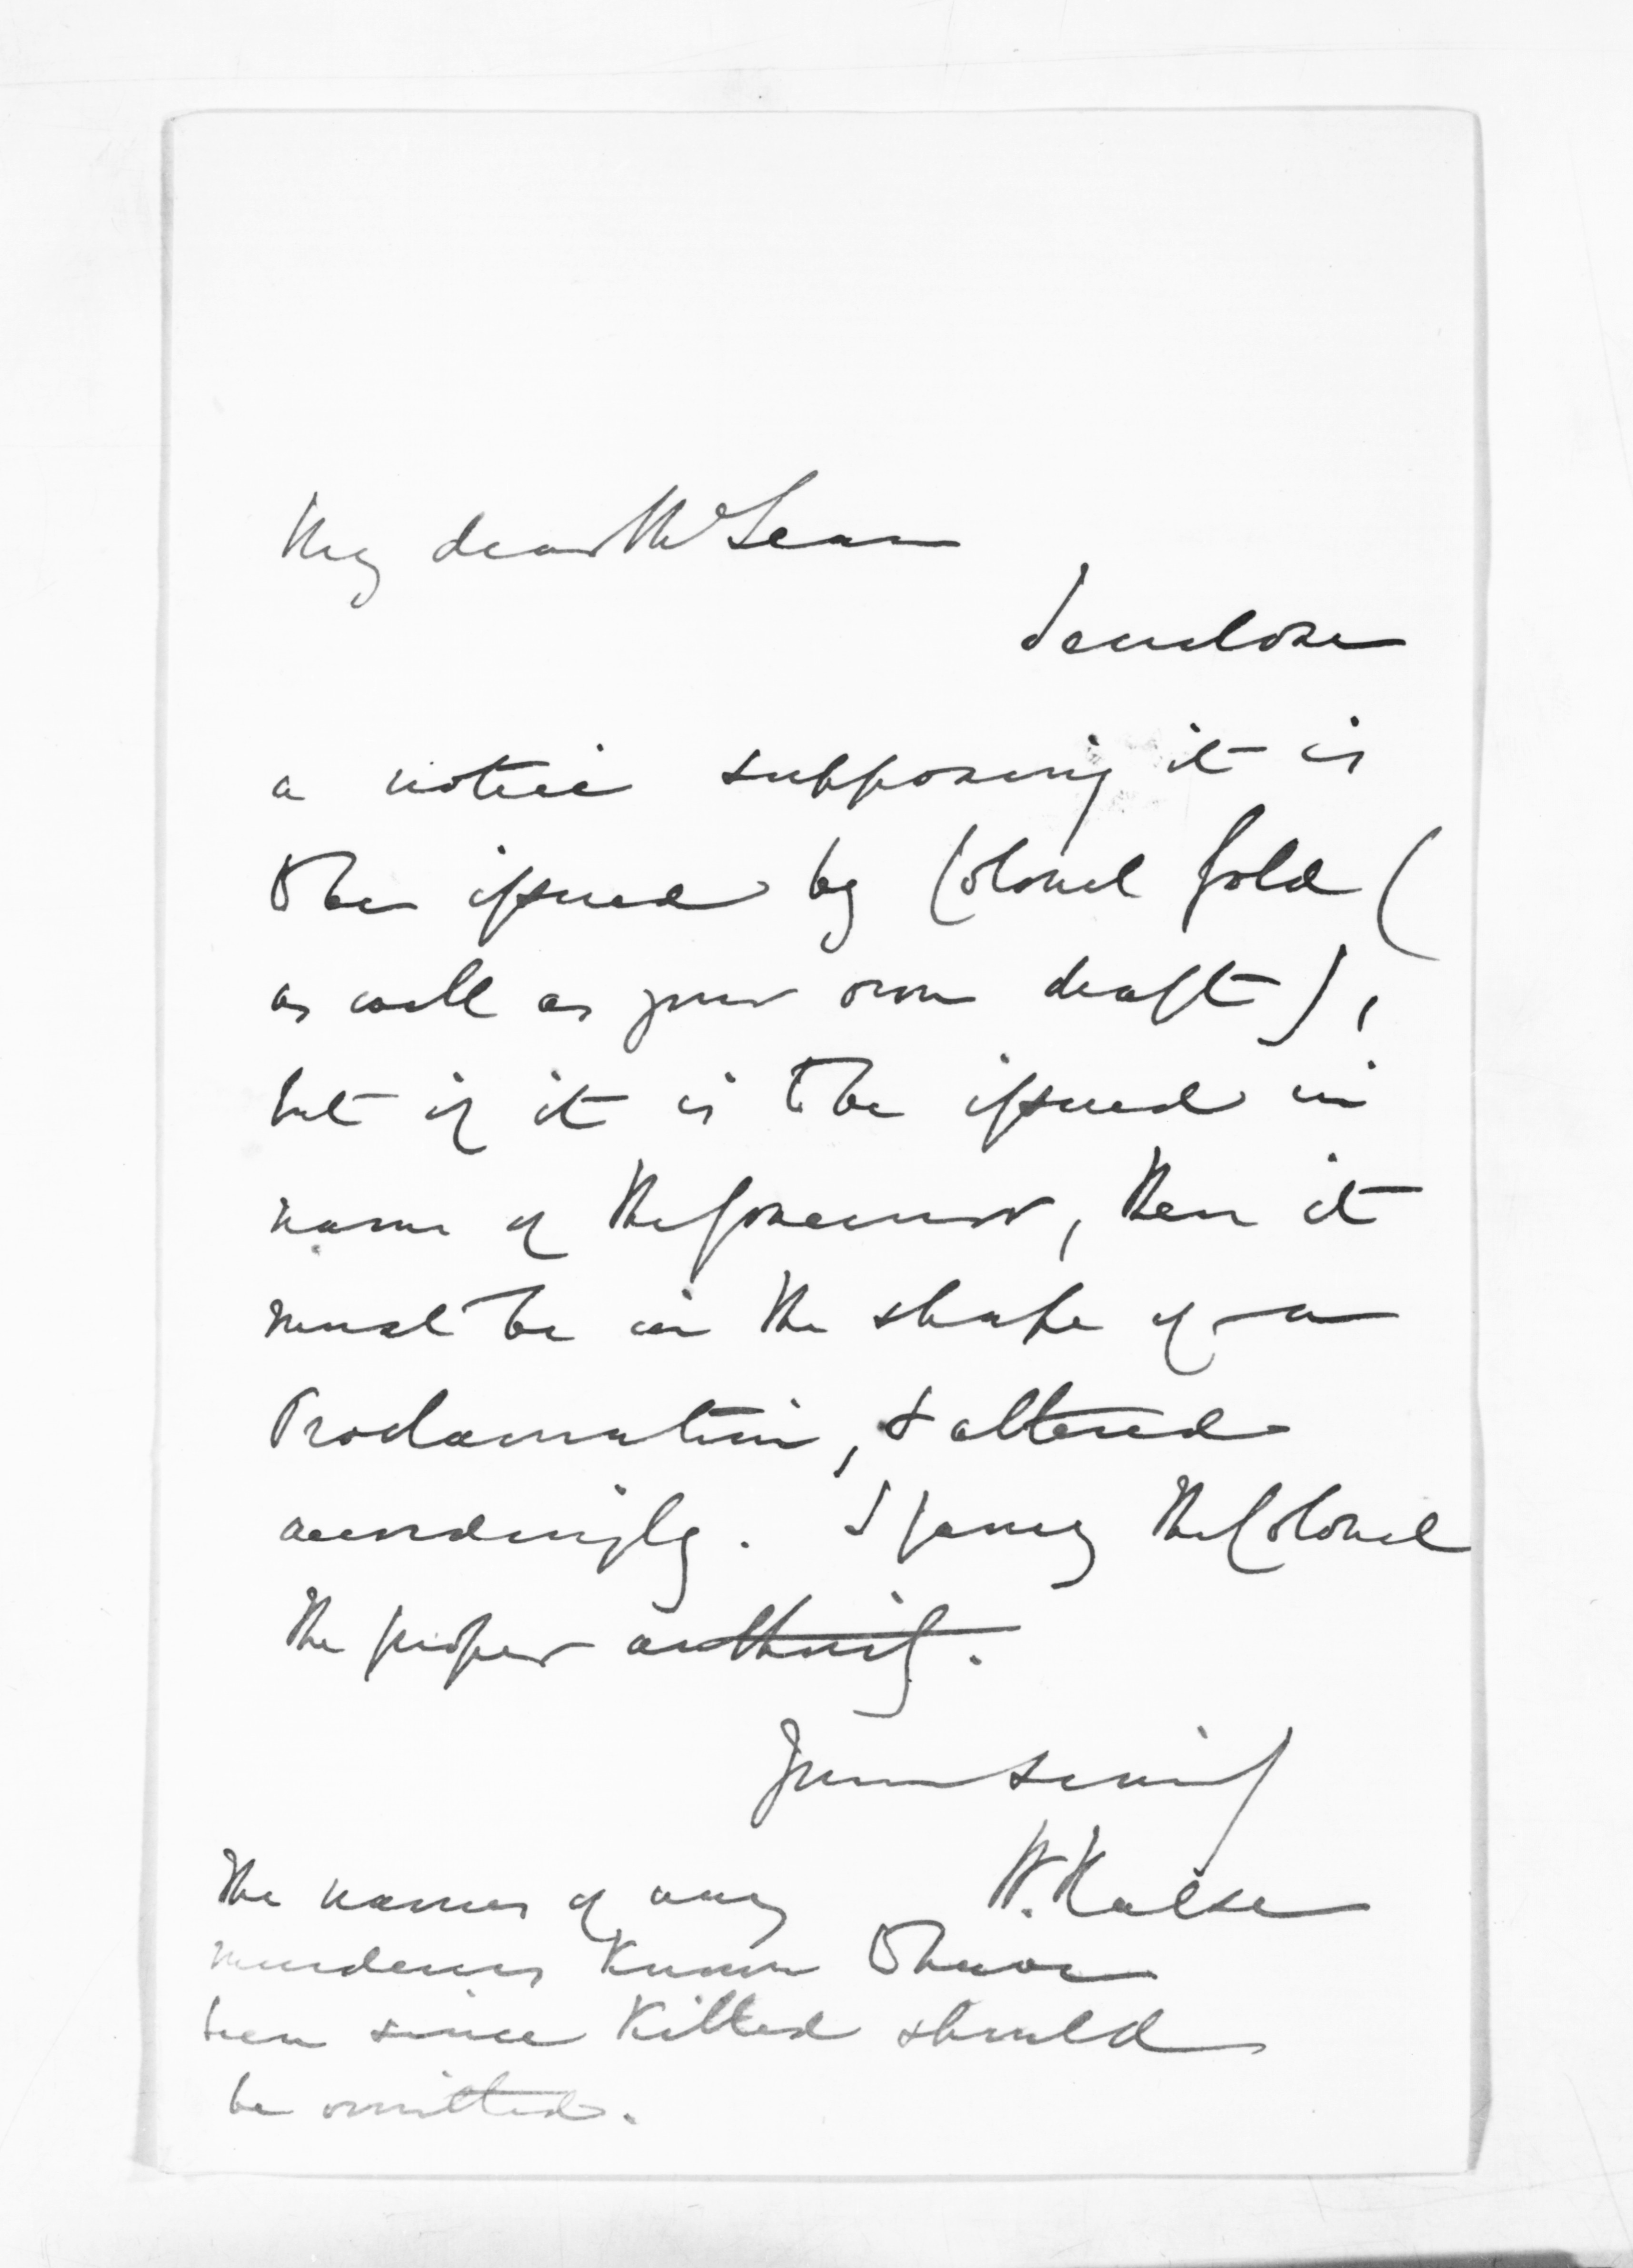 My dear McLean
I enclose
a notice supposing it is
to be issued by Colonel Gold (
as well as your own draft),
but if it is to be issued in
name of the Governor, then it
must be in the shape of a
Proclamation, & altered
accordingly. I fancy the Colonel
the proper authority.
Yours sincerely
W. Halse
The names of any
murderers known to have
been since killed should
be omitted.